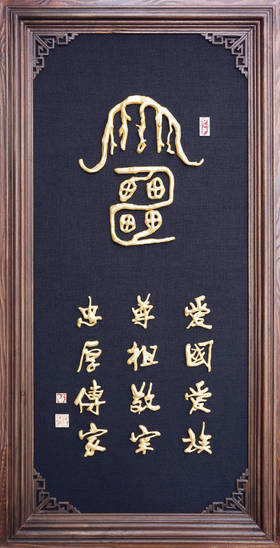 愛國愛族
尊祖敬宗
忠厚傳家